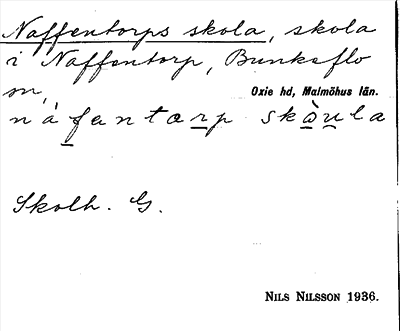 Naffentorps skola, skola
i Naffentorp, Bunkeflo
sn,
Oxie hd, Malmöhus län.
nàfentærp skɷ̀ula
Skolh. G.
NILS NILSSON 1936.